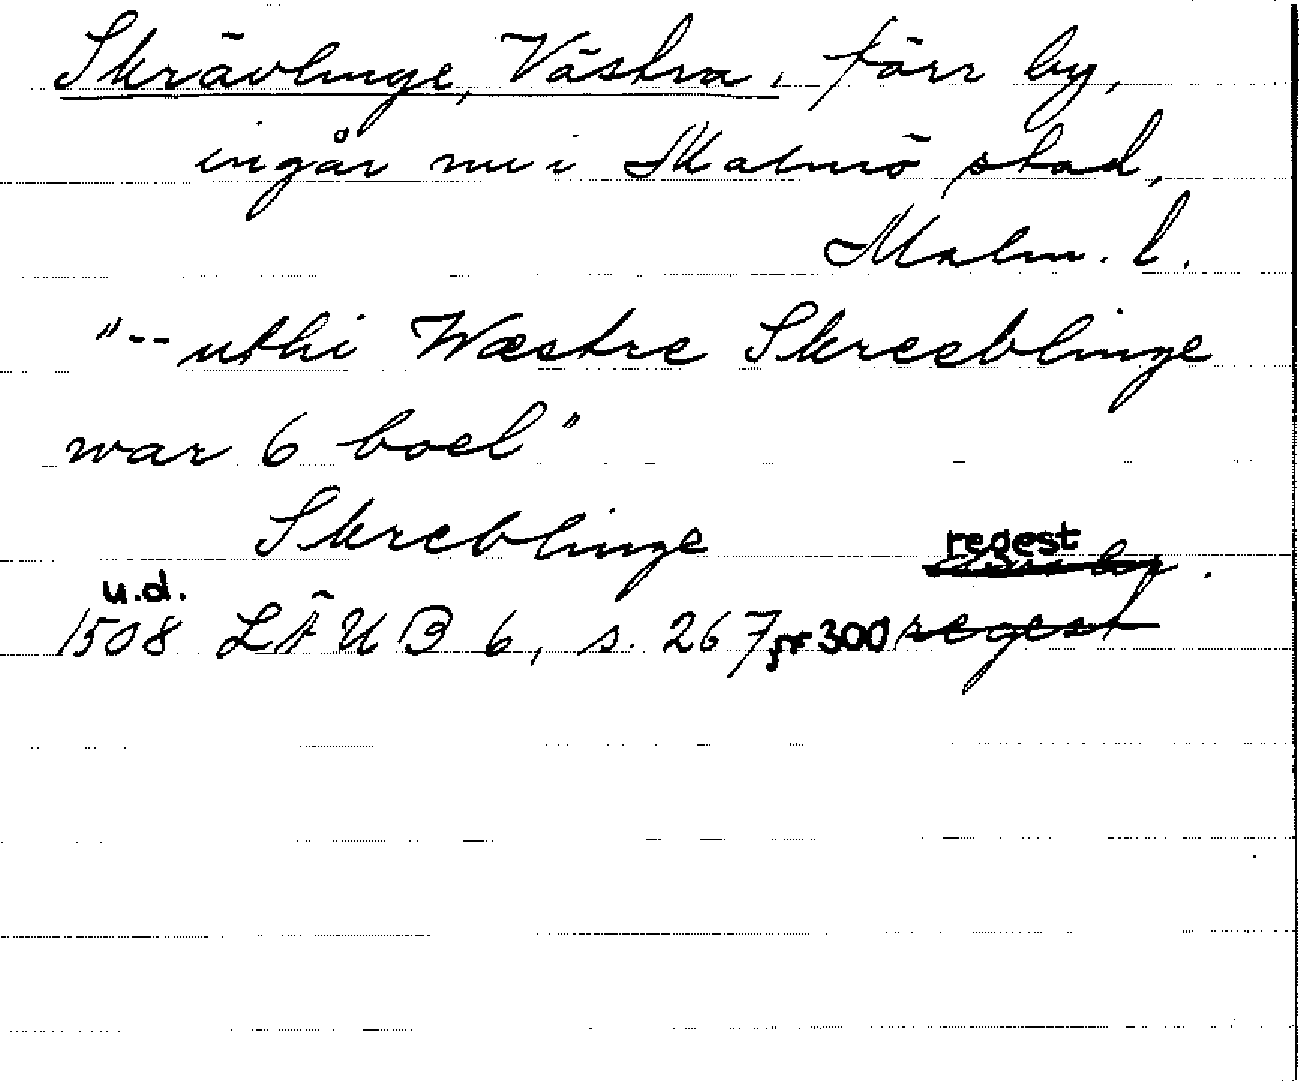 Skrävlinge, Västra, förr by,
ingår nu i Malmö stad,
Malm. l.
"-- uthi Wæstre Skreeblinge
war 6 boel"
Skreblinge regest
u.d.
1508 LÄUB 6, s. 267 nr 300 regest